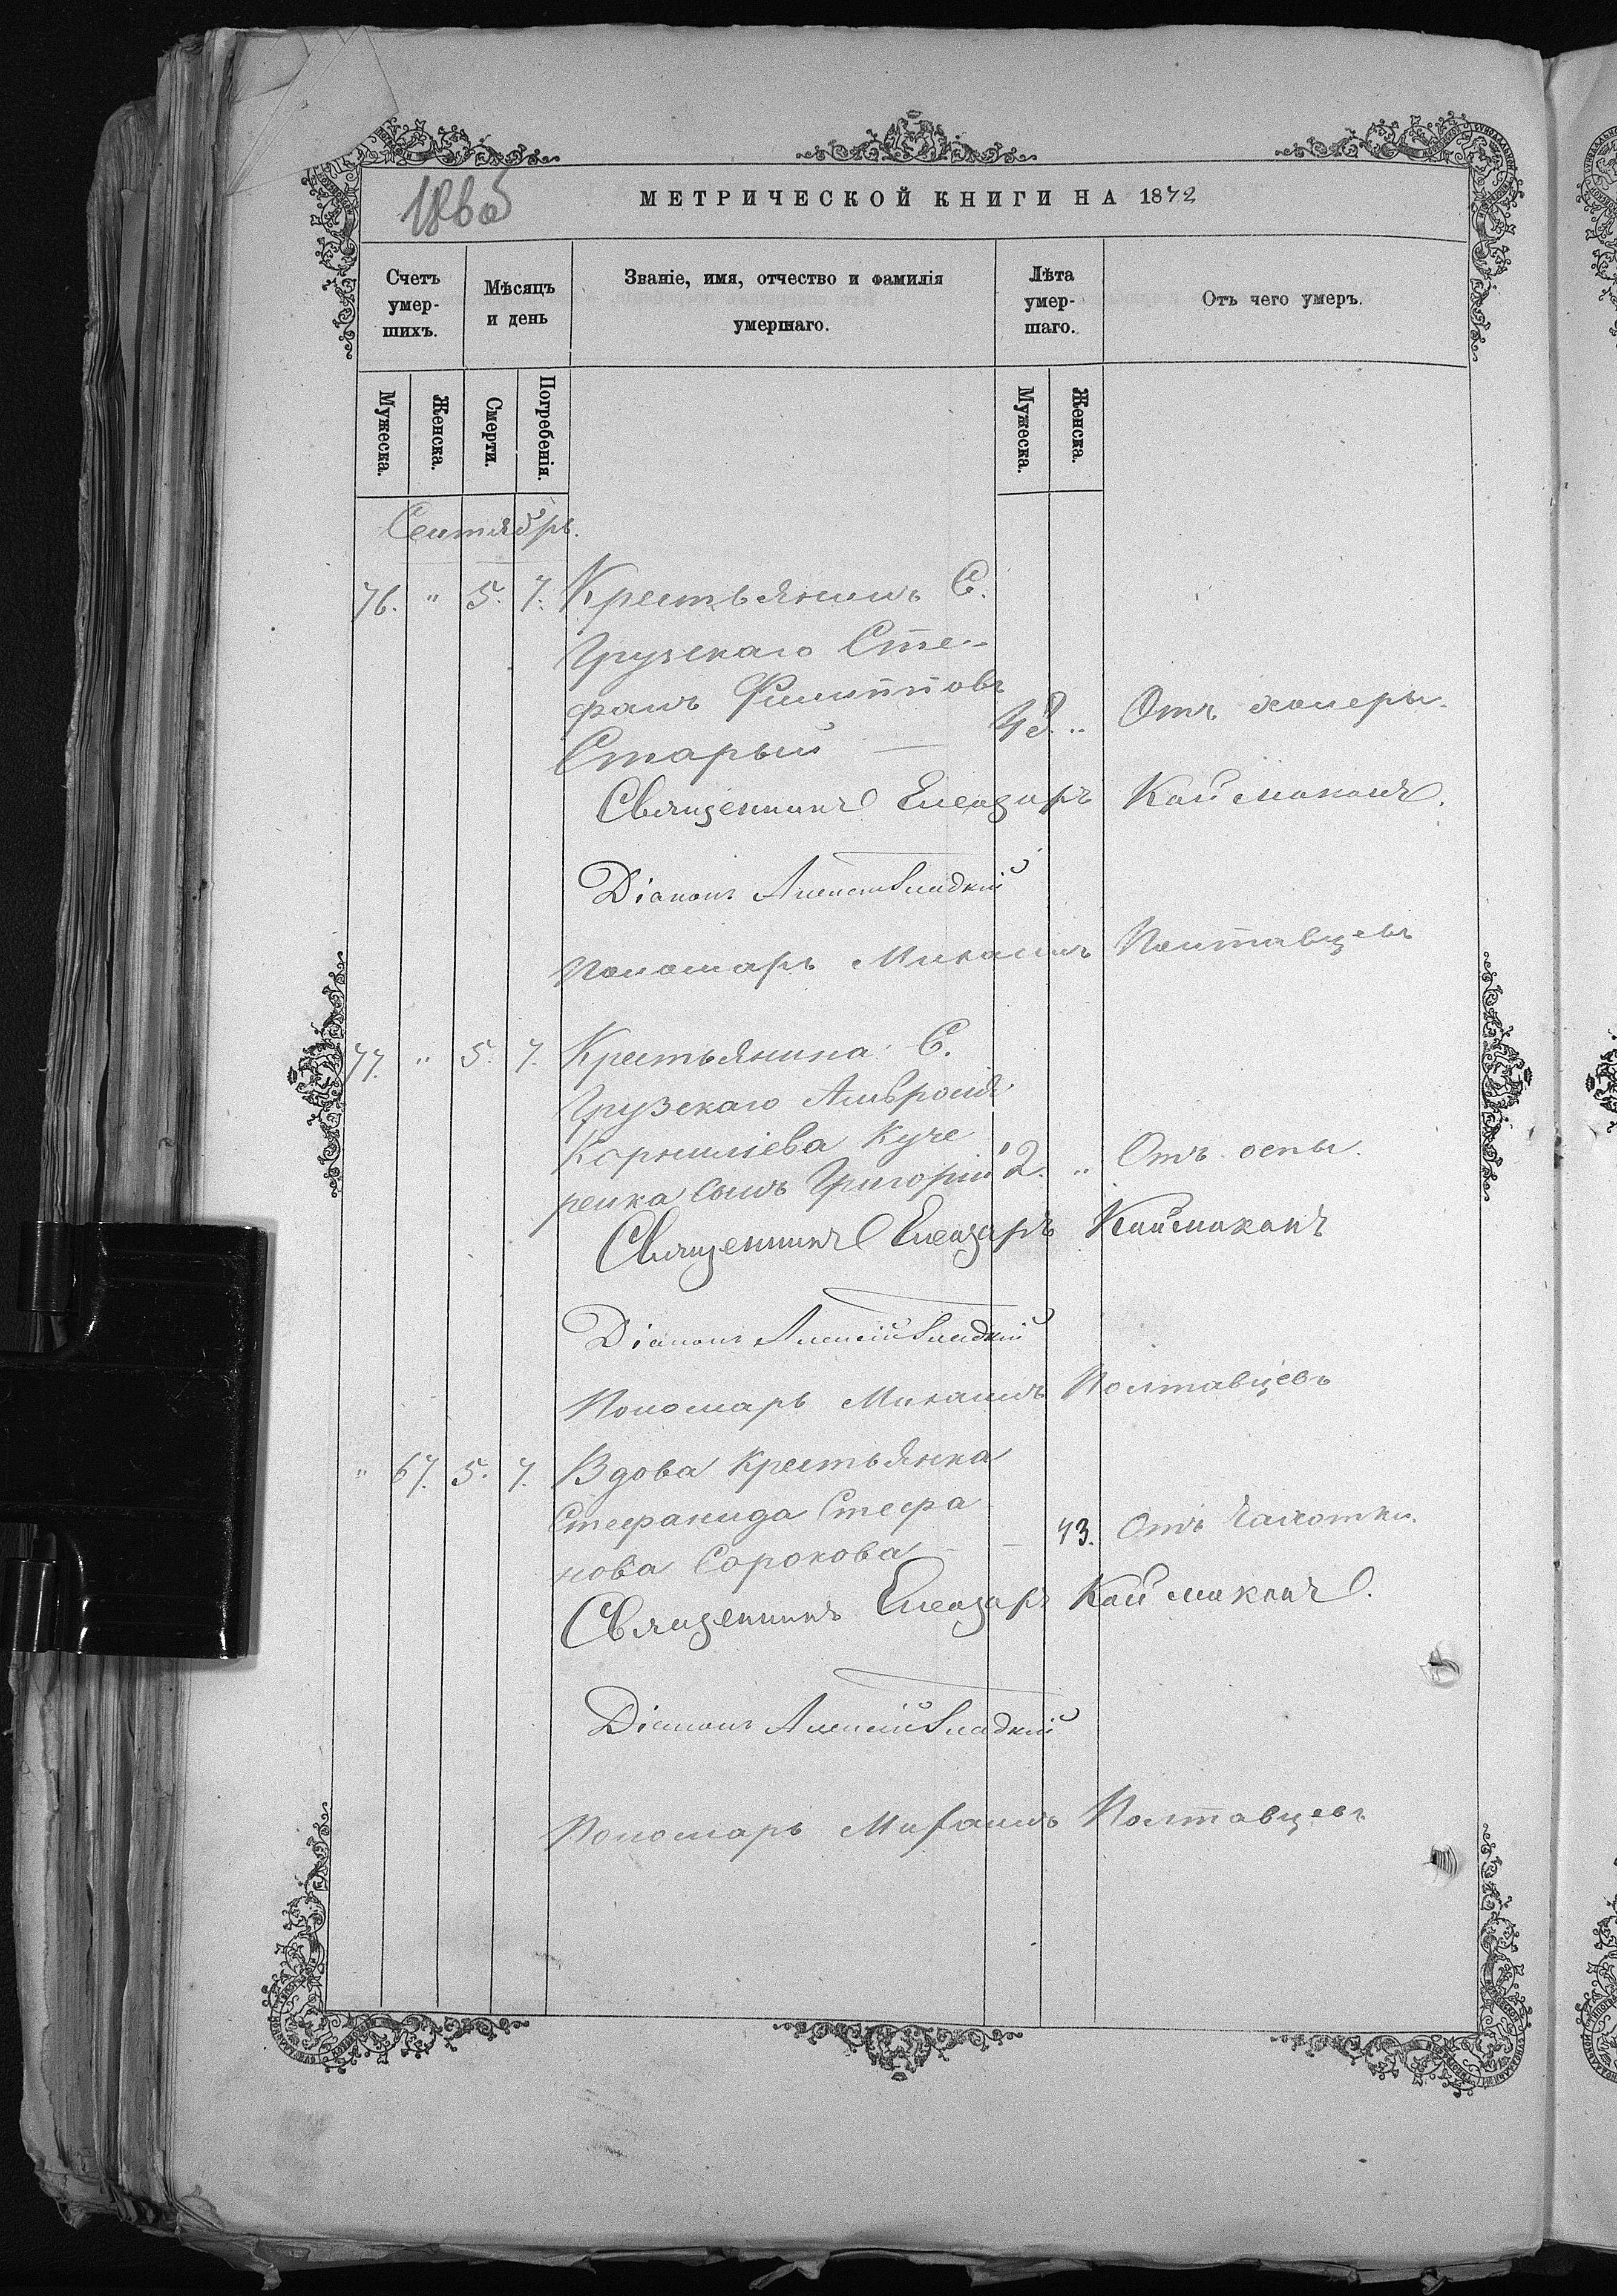 МЕТРИЧЕСКОЙ КНИГИ НА 1872
Счетъ умер-шихъ.
Мѣсяцъ и день
Званіе, имя, отчество и фамилія умершаго.
Лѣта умер-шаго.
Отъ чего умеръ.
Мужеска.
Женска.
Смерти.
Погребенія.
Мужеска.
Женска.
Сентябрь.
76. " 5. 7. Крестьянинъ С.
Грузскаго Сте-
фанъ Филипповъ
Старый — " Отъ холеры.
Священникъ Елеазаръ Каймаканъ.
Діаконъ Алексій Сладкій
Пономарь Михаилъ Полтавцевъ
77. " 5. 7. Крестьянина С.
Грузскаго Амвросія
Корниліева Куче
ренка сынъ Григорій 2. " Отъ оспы.
Священникъ Елеазаръ Каймаканъ
Діаконъ Алексій Сладкій
Пономарь Михаилъ Полтавцевъ
" 67. 5. 7. Вдова крестьянка
Стефанида Стефа
нова Сорокова — — 73. Отъ чахотки.
Священникъ Елеазаръ Каймаканъ.
Діаконъ Алексій Сладкій
Пономарь Михаилъ Полтавцевъ